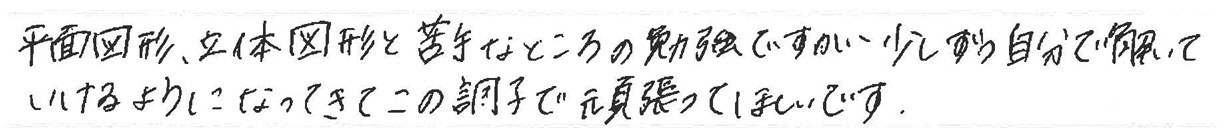 平面図形、立体図形と苦手なところの勉強ですが、少しずつ自分で解いて
いけるようになってきてこの調子で頑張ってほしいです.